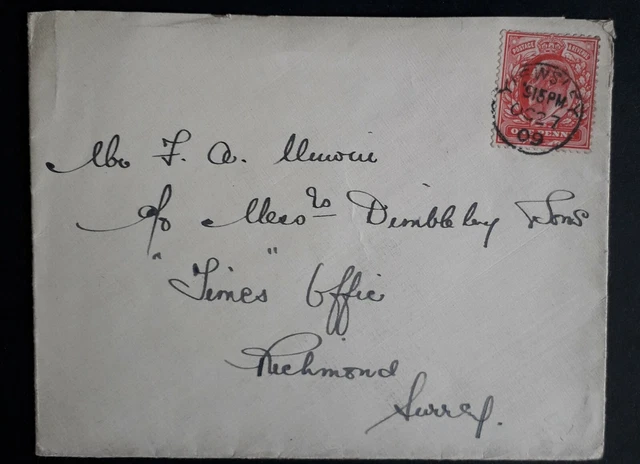 POSTAGE REVENUE
5 15 PM
OC 27
09
ONE PENNY
F. A.
c/o Messrs Dimbleby & Sons
"Times" Office
Richmond
Surrey.